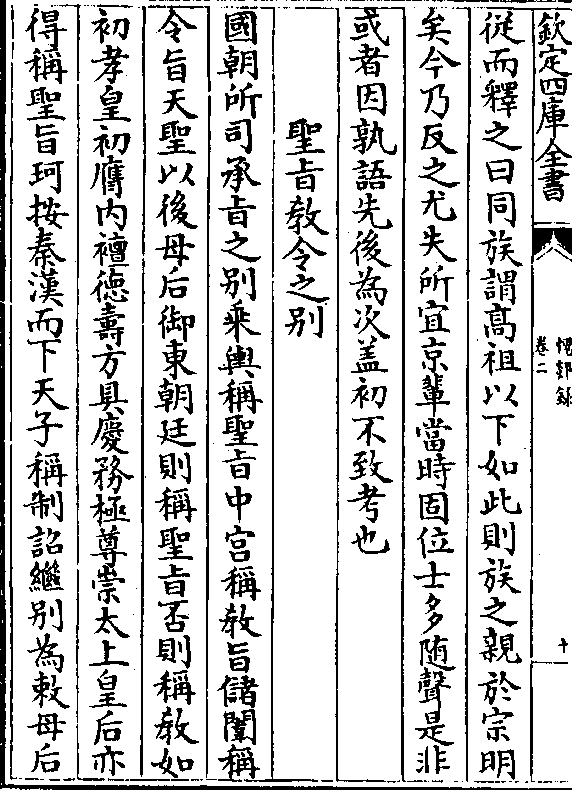 欽定四庫全書
愧郯錄
卷二
十
從而釋之曰同族謂高祖以下如此則族之親於宗明
矣今乃反之尤失所宜京輩當時固位士多随聲是非
或者因孰語先後為次盖初不致考也
聖旨教令之别
國朝所司承旨之别乘輿稱聖旨中宫稱教旨儲闈稱
令旨天聖以後母后御東朝廷則稱聖旨否則稱教如
初孝皇初膺内襢徳壽方具慶務極尊崇太上皇后亦
得稱聖旨珂按秦漢而下天子稱制詔繼别為敕母后